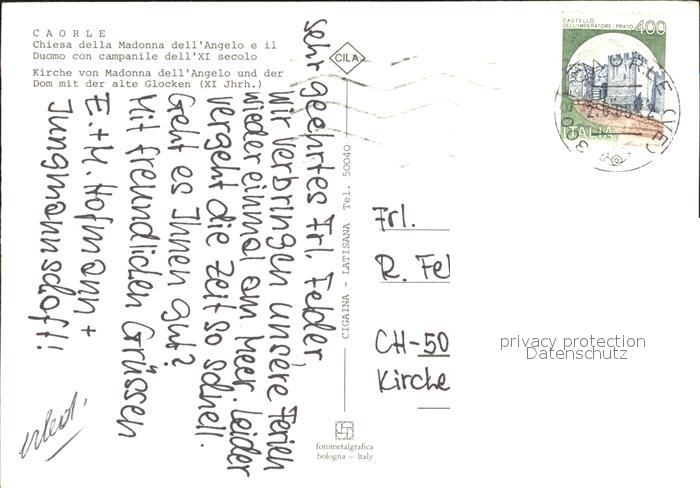 CAORLE
Chiesa della Madonna dell'Angelo e il
Duomo con campanile dell'XI secolo
Kirche von Madonna dell'Angelo und der
Dom mit der alte Glocken (XI Jhrh.)
Sehr geehrtes Frl. Felder
wir verbringen unsere Ferien
wieder einmal am Meer. Leider
vergeht die Zeit so schnell.
Geht es Ihnen gut?
Mit freundlichen Grüssen
E.+M. Hofmann +
Jungmannschaft!!
CILA
CIGAINA - LATISANA Tel. 50040
fotometalgrafica
bologna - Italy
CASTELLO
DELL'IMPERATORE - PRATO 400
ITALIA
CAORLE (VE)
Frl.
R. Fel
CH-50
Kirche
privacy protection
Datenschutz